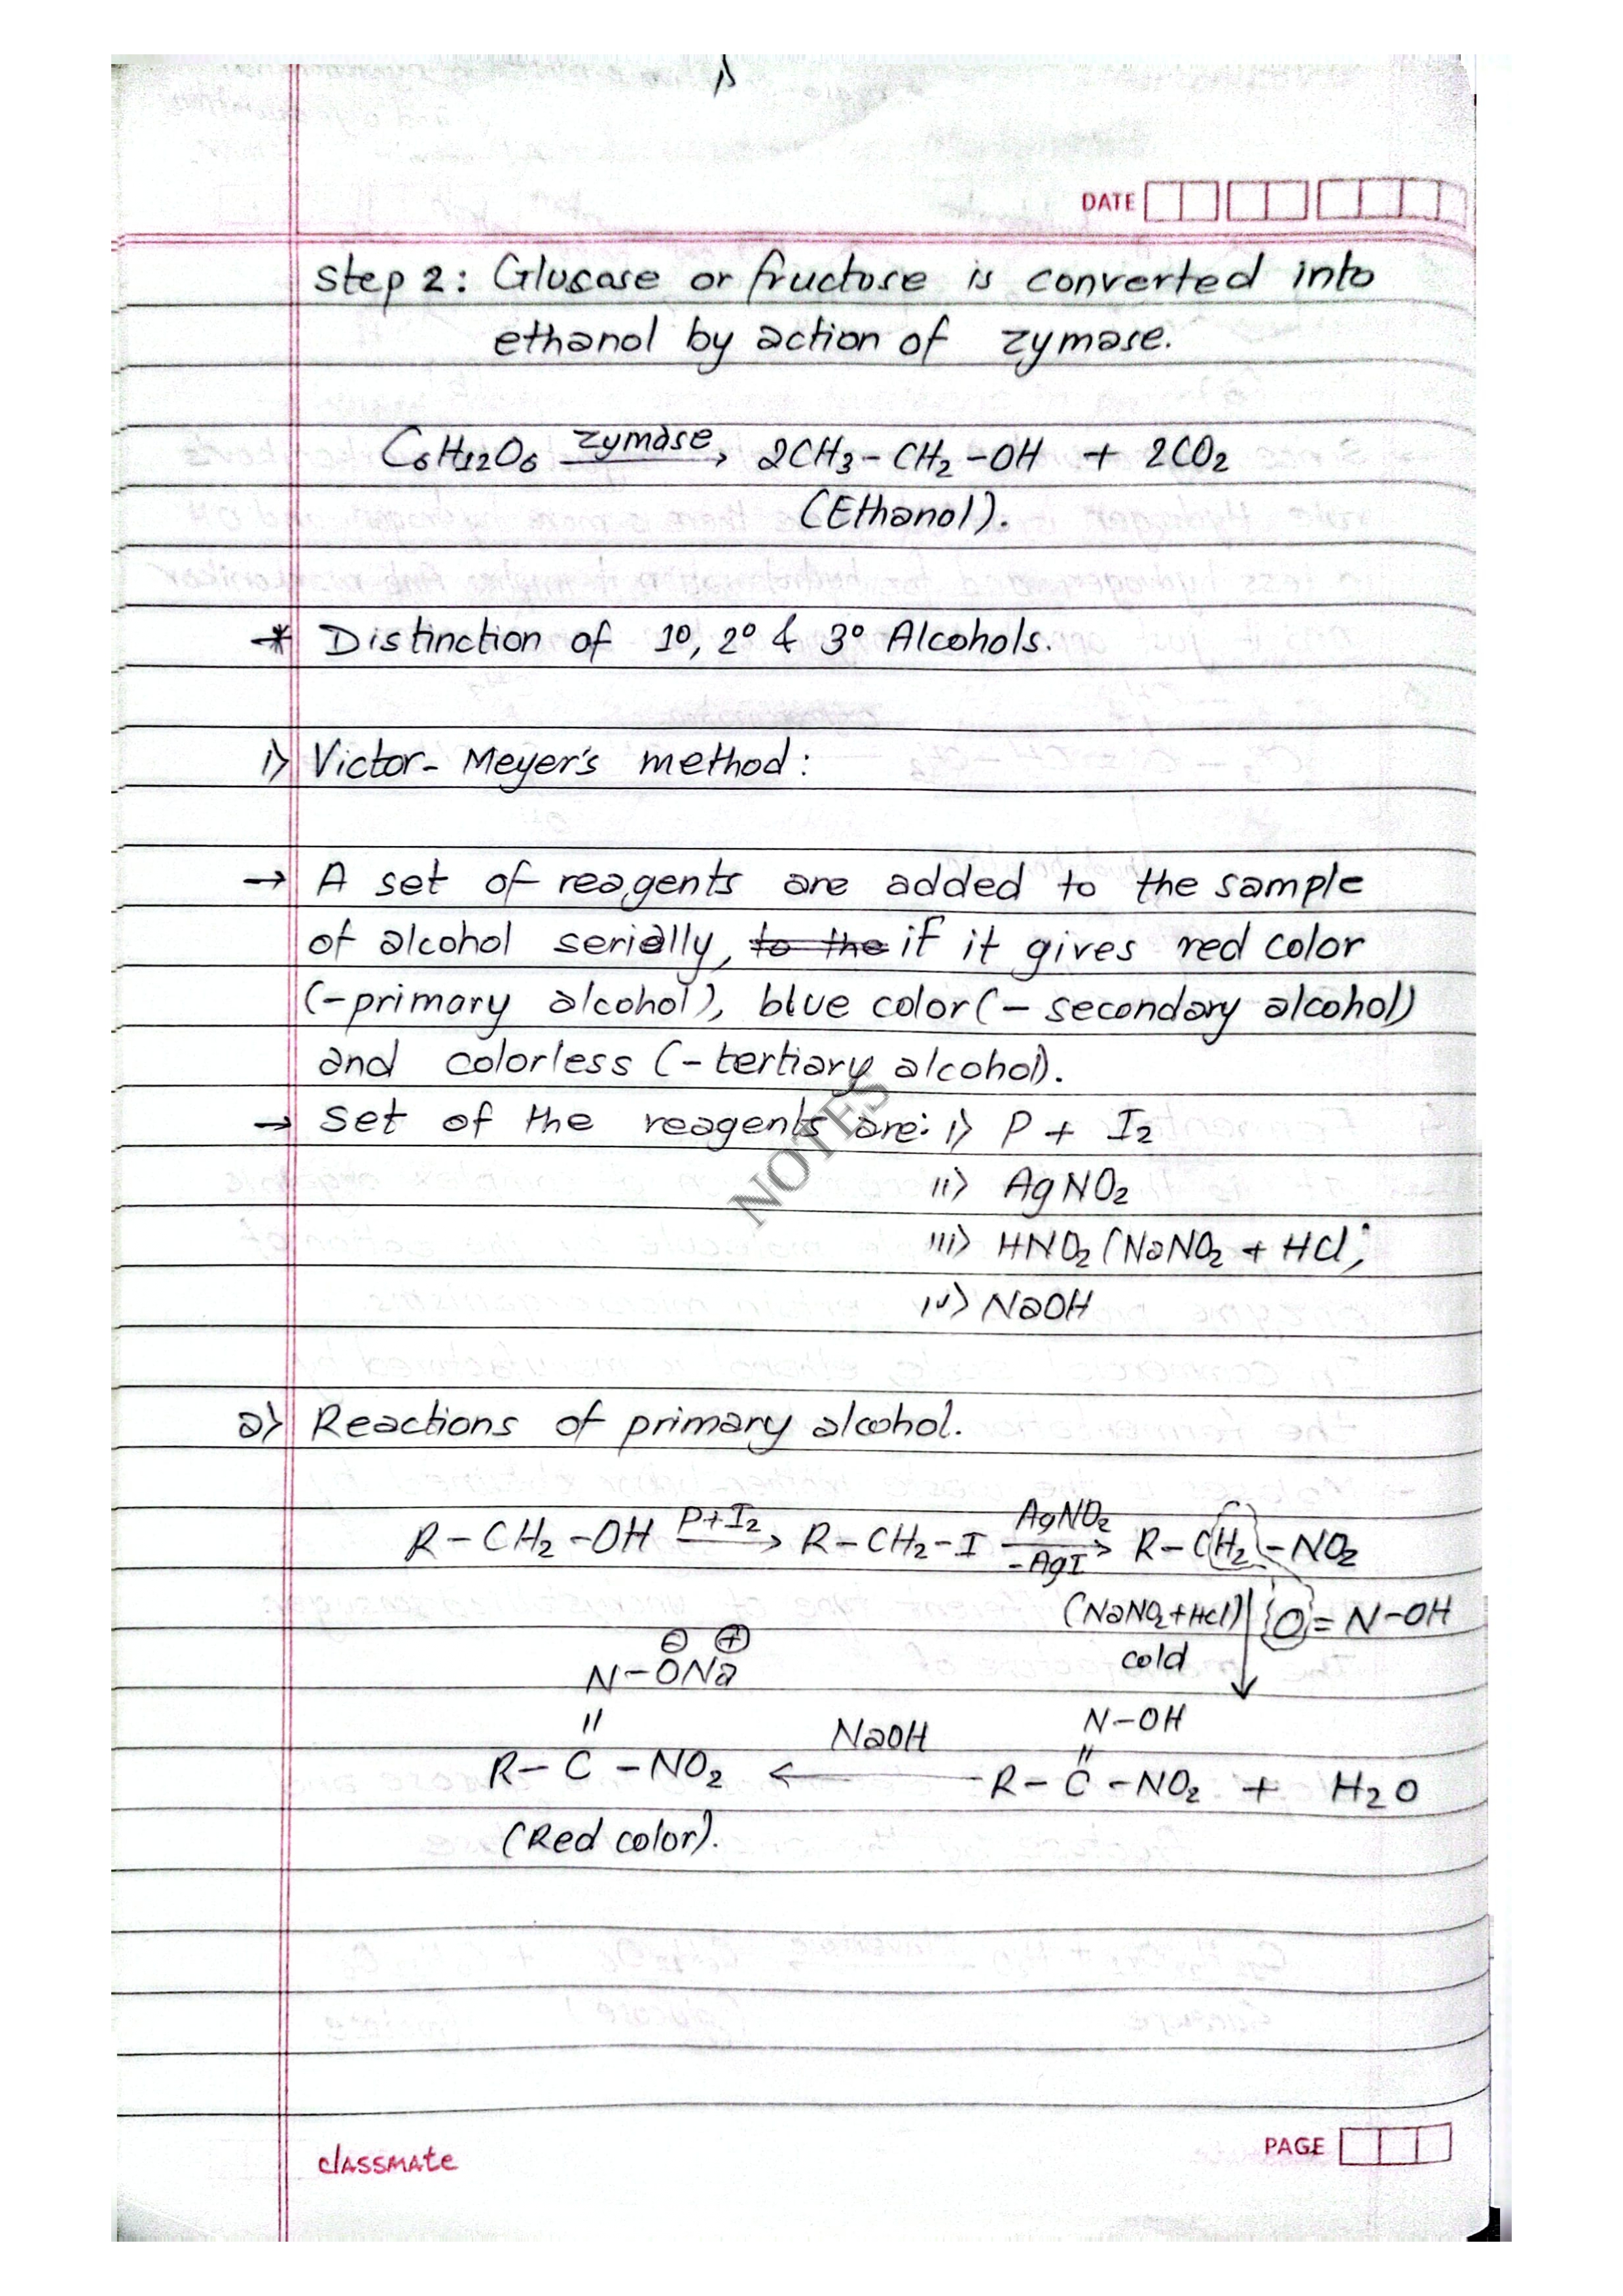 DATE
Step 2: Glucose or fructose is converted into
ethanol by action of zymase.
C6H12O6 zymase → 2CH3-CH2-OH + 2CO2
(Ethanol).
* Distinction of 1°, 2° & 3° Alcohols.
i) Victor-Meyer's method:
→ A set of reagents are added to the sample
of alcohol serially, to the if it gives red color
(-primary alcohol), blue color (- secondary alcohol)
and colorless (- tertiary alcohol).
→ set of the reagents are: i) P + I2
ii) AgNO2
iii) HNO2 (NaNO2 + HCl;
iv) NaOH
NOTES
a) Reactions of primary alcohol.
R-CH2-OH P+I2 → R-CH2-I AgNO2 → -AgI R-CH2-NO2
(NaNO2+HCl) ↓ O=N-OH
cold
N-O⊖Na⊕
N-OH
= NaOH =
R-C-NO2 ← R-C-NO2 + H2O
(Red color).
classmate
PAGE